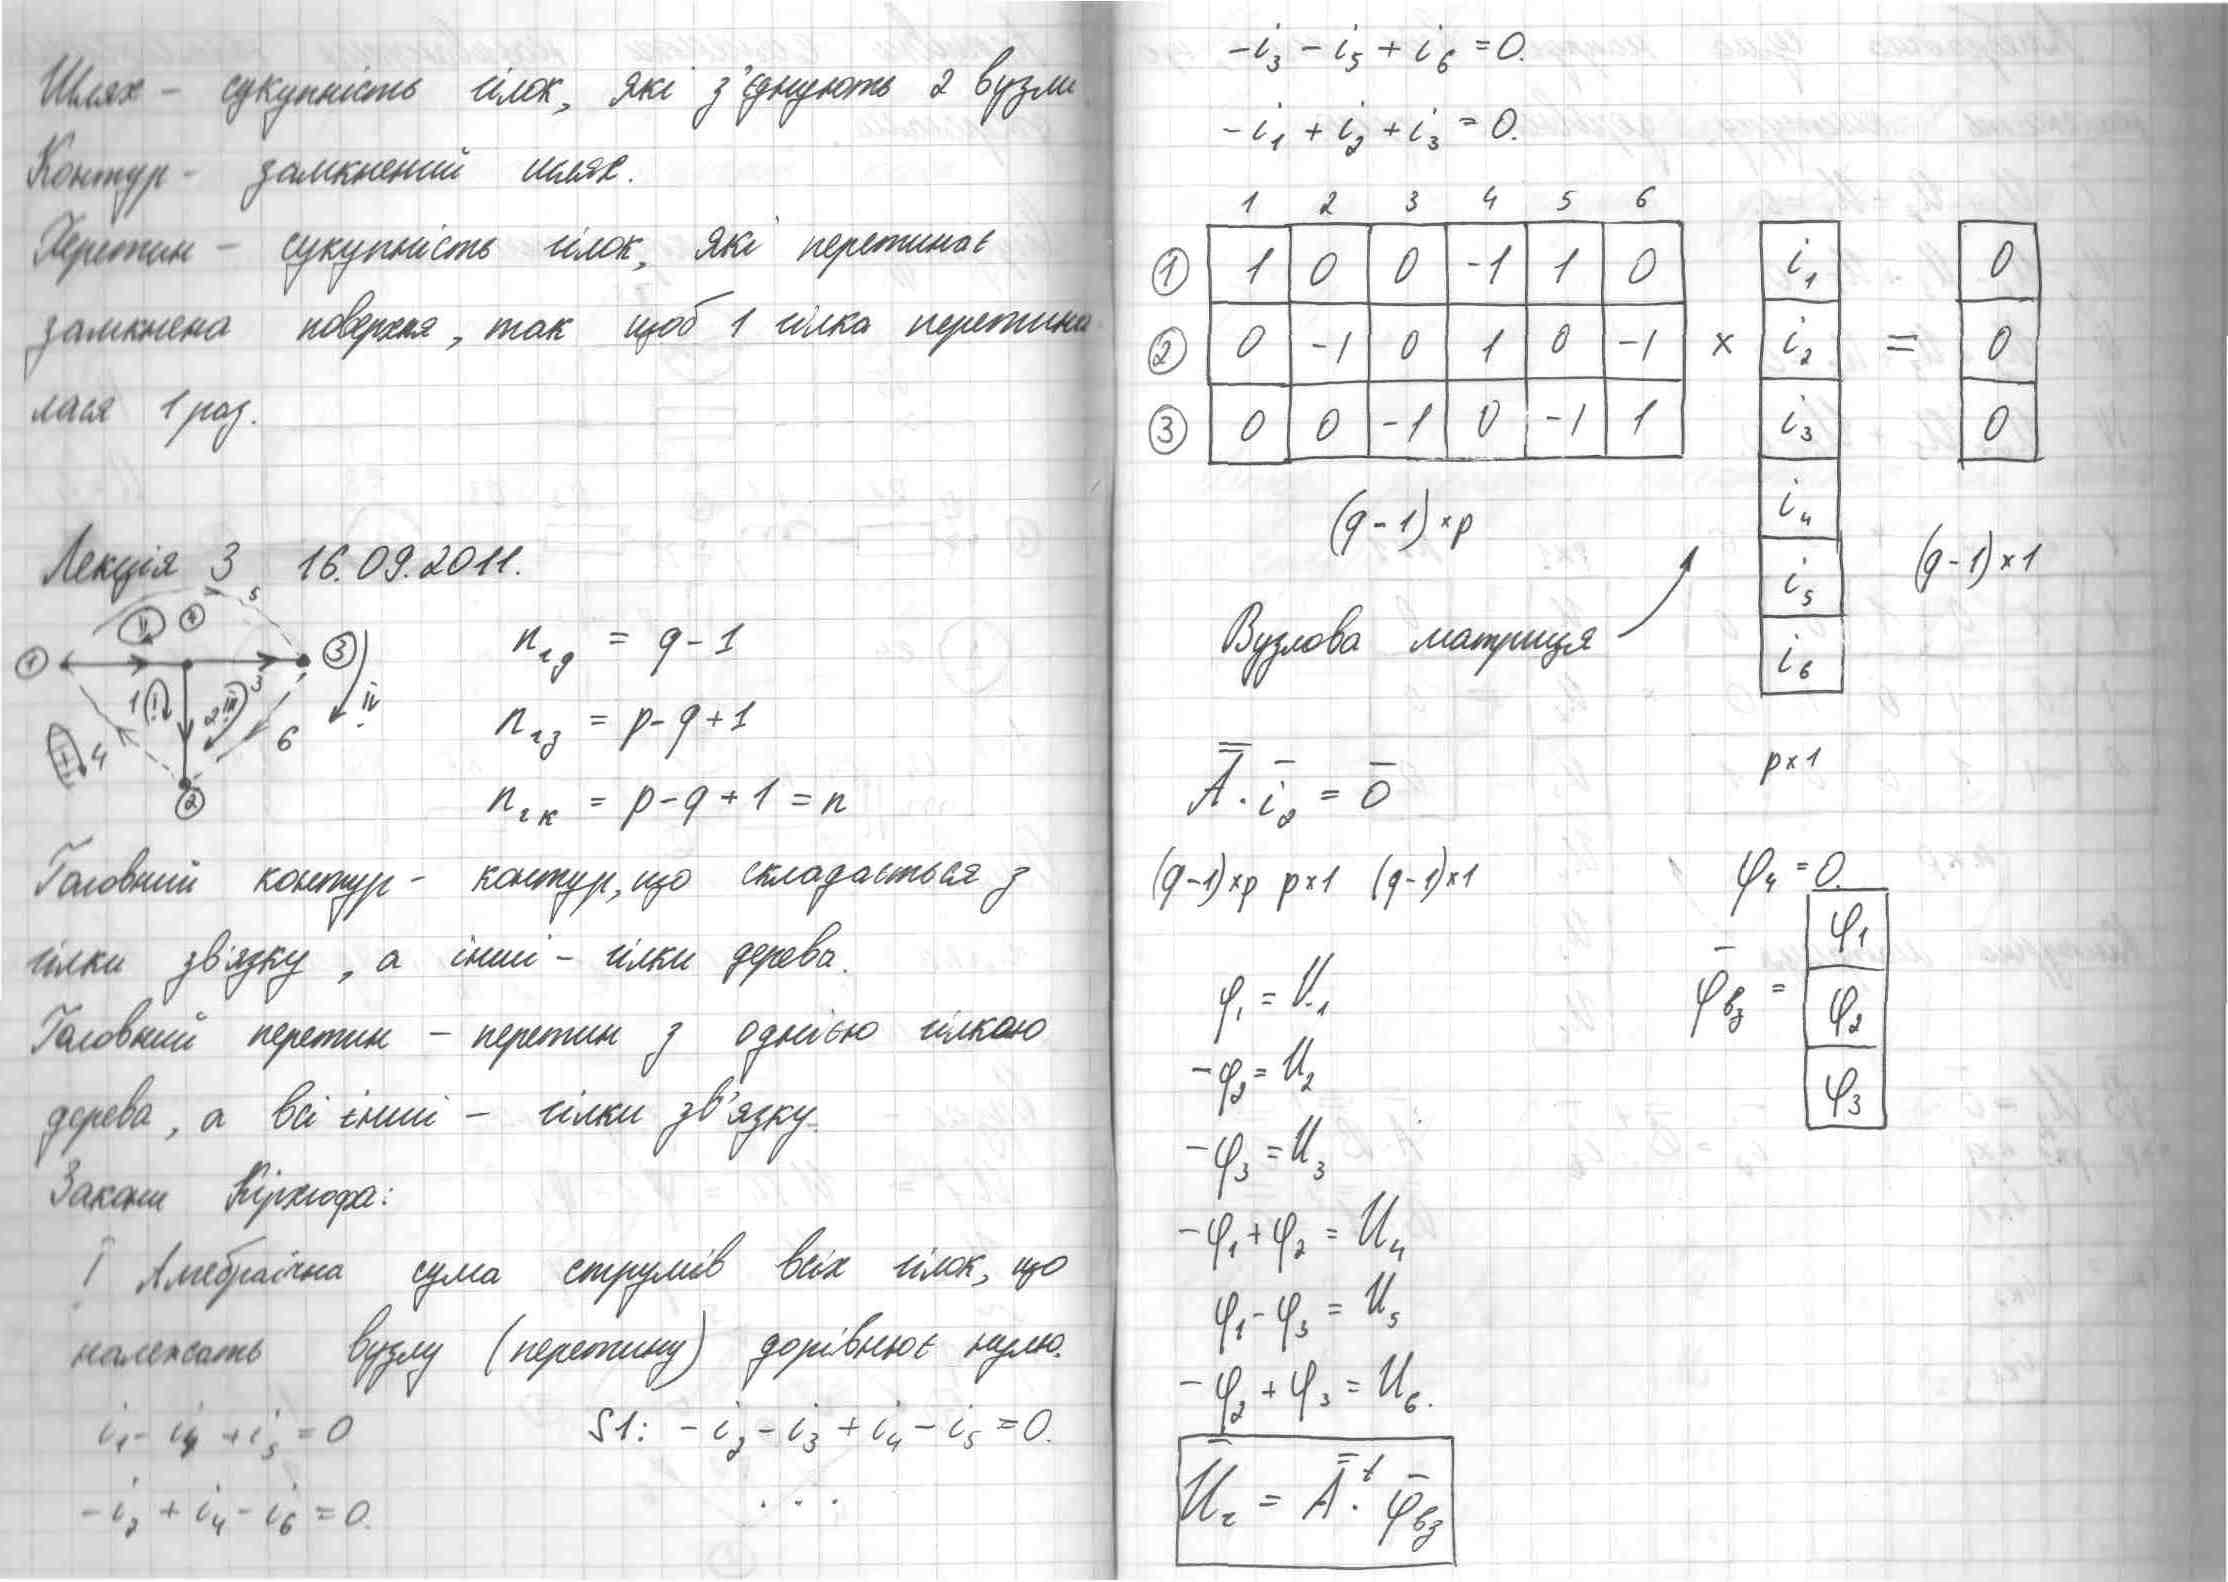 Шлях – сукупність гілок, які з'єднують 2 вузли
Контур – замкнений шлях.
Перетин – сукупність гілок, які перетинає
замкнена поверхня, так щоб 1 гілка перетина
лася 1 раз.
Лекція 3 16.09.2011.
5
II 4
1 3
1 I 2 III 3 IV
4 6
2
n_гд = q - 1
n_гз = p - q + 1
n_гк = p - q + 1 = n
Головний контур – контур, що складається з
гілки зв'язку, а інші – гілки дерева.
Головний перетин – перетин з однією гілкою
дерева, а всі інші – гілки зв'язку.
Закони Кірхгофа:
I Алгебраїчна сума струмів всіх гілок, що
належать вузлу (перетину) дорівнює нулю.
i₁ - i₄ + i₅ = 0 S1: -i₂ - i₃ + i₄ - i₅ = 0.
-i₂ + i₄ - i₆ = 0. . . .
-i₃ - i₅ + i₆ = 0.
-i₁ + i₂ + i₃ = 0.
1 2 3 4 5 6
① 1 0 0 -1 1 0 i₁ 0
② 0 -1 0 1 0 -1 × i₂ = 0
③ 0 0 -1 0 -1 1 i₃ 0
i₄
(q-1)×p i₅ (q-1)×1
Вузлова матриця i₆
p×1
A̿ · i̅_г = 0̅
(q-1)×p p×1 (q-1)×1
φ₄ = 0.
φ̅_вз = φ₁
φ₂
φ₃
φ₁ = U₁
-φ₂ = U₂
-φ₃ = U₃
-φ₁ + φ₂ = U₄
φ₁ - φ₃ = U₅
-φ₂ + φ₃ = U₆.
U̅_г = A̿ᵗ · φ̅_вз